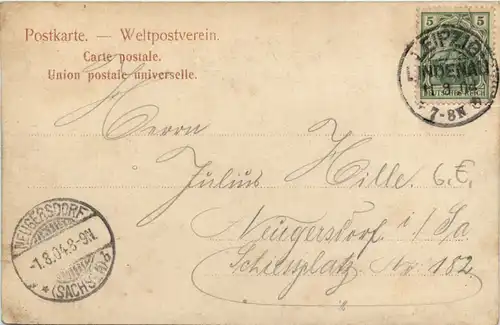 Postkarte. — Weltpostverein.
Carte postale.
Union postale universelle.
5 5
DEUTSCHES REICH
LEIPZIG
LINDENAU
7-8N
Herrn
Julius Hille
Neugersdorf i/Sa
Schiessplatz Nr 182
NEUGERSDORF
-1.8.04.8-9N
* (SACHSEN) *